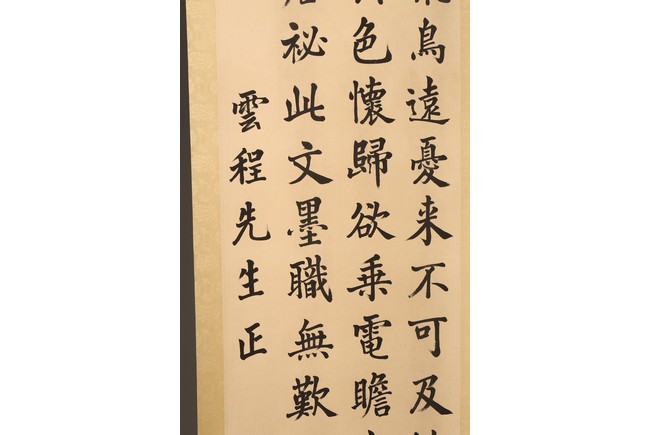 鳥遠憂来不可及
色懷歸欲乗電瞻
祕此文墨職無歎
雲程先生正